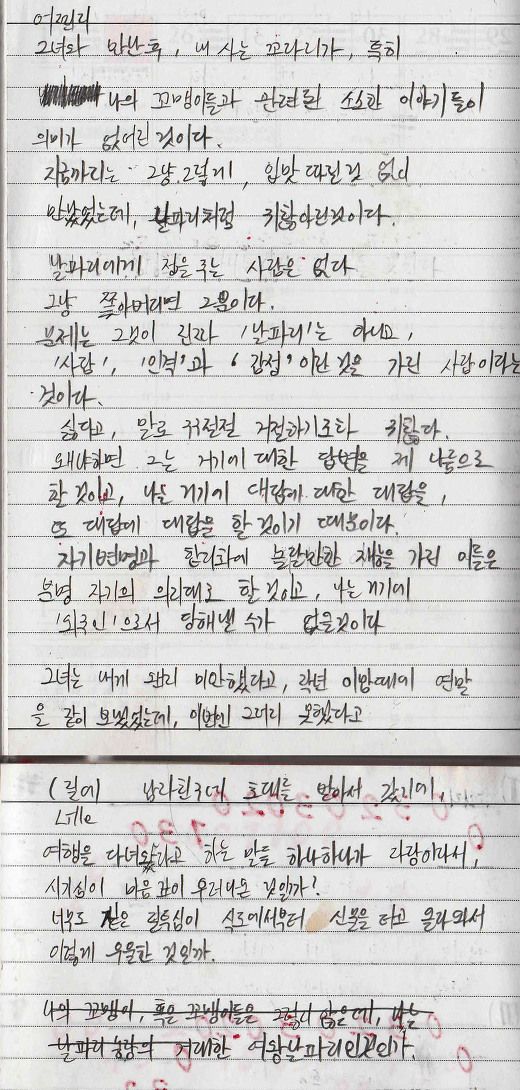 어쩐지
그녀와 만난 후, 내 사는 꼬라리가, 특히
나의 꼬맹이들과 관련된 소소한 이야기들이
의미가 없어진 것이다.
지금까지는 그냥 그렇게, 입맛 따린 것 없이
만났었는데, 날파리처럼 귀찮아진것이다.
날파리에게 정을 주는 사람은 없다
그냥 쫓아버리면 그뿐이다.
문제는 그것이 진짜 '날파리'는 아니고,
'사람', '인격'과 '감정'이란 것을 가진 사람이라는
것이다.
싫다고, 말로 구절절 거절하기조차 귀찮다.
왜냐하면 그는 거기에 대한 답변을 제 나름으로
할 것이고, 나는 거기에 대답에 대한 대답을,
또 대답에 대답을 할 것이기 때문이다.
자기변명과 합리화에 놀랄만한 재능을 가진 이들은
분명 자기의 의리대로 할 것이고, 나는 거기에
'외국인'으로서 당해낼 수가 없을것이다
그녀는 내게 왠지 미안했다고, 작년 이맘때에 연말
을 같이 보냈었는데, 이번엔 그러지 못했다고
(릴에 남자친구에 초대를 받아서 갔기에,
Lille
여행을 다녀왔다고 하는 말들 하나하나가 자랑이라서,
시기심이 마음 깊이 우러나온 것일까?
너무도 깊은 질투심이 식도에서부터 신물을 타고 올라와서
이렇게 우울한 것일까.
나의 꼬맹이, 혹은 꼬맹이들은 그렇지 않은데, 나는
날파리 농장의 거대한 여왕날파리인것인가.